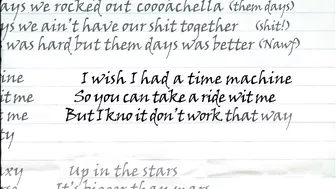 ays we rocked out coooachella (them days)
ys we ain't have our shit together (shit!)
was hard but them days was better (Nawf)
ine I wish I had a time machine
it me So you can take a ride wit me
me But I kno it don't work that way
ty
axy Up in the stars
It's bigger than mars